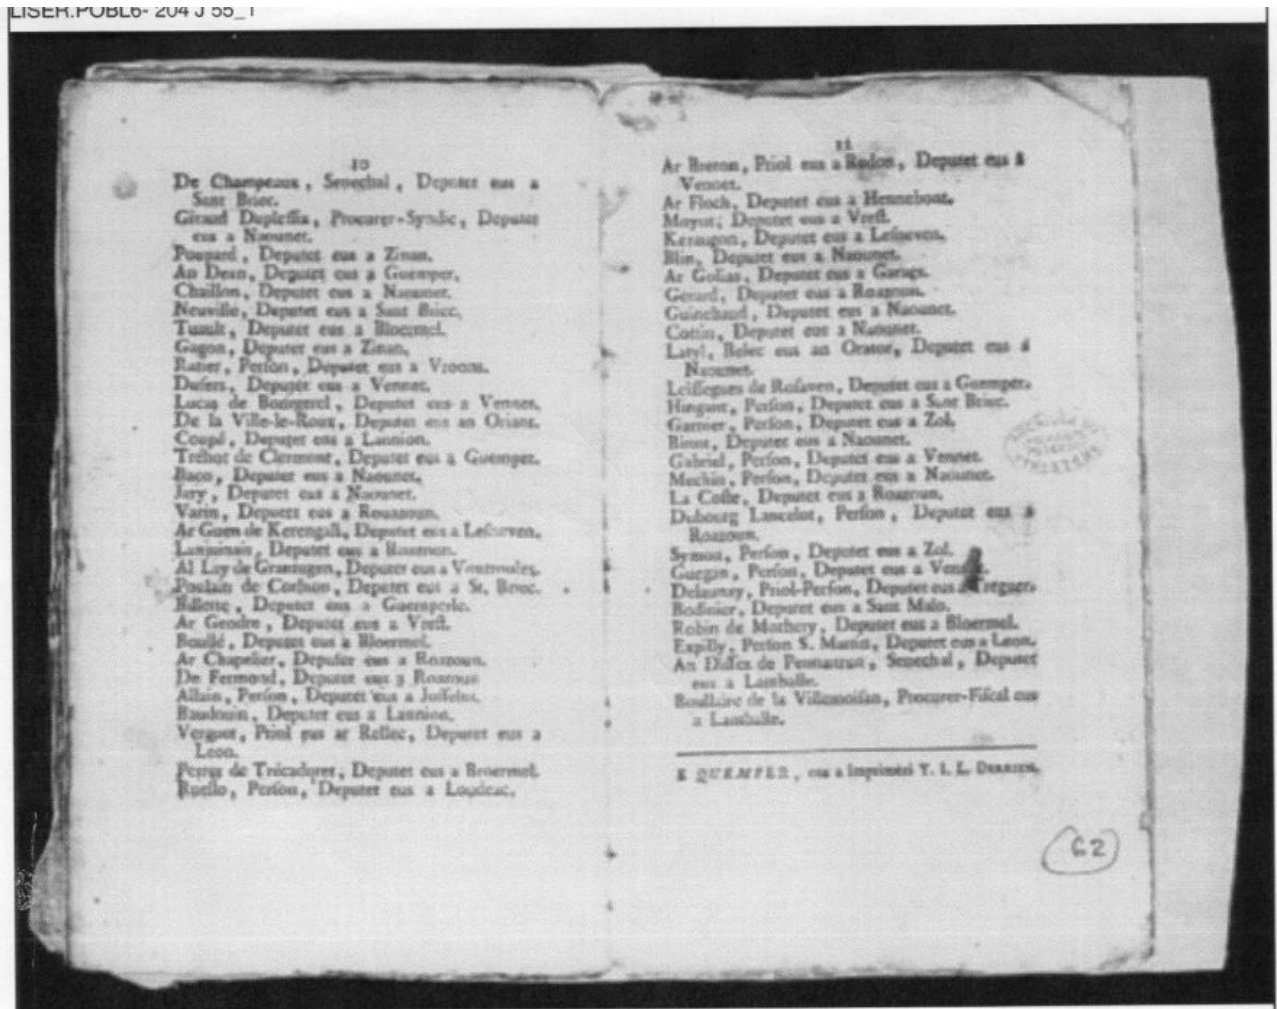 LISER.POBL6- 204 J 55_1
10
De Champeaux, Senechal, Deputet eus a
Sant Briec.
Giraud Duplessix, Procurer-Syndic, Deputet
eus a Naounet.
Poupard, Deputet eus a Zinan.
An Dean, Deputet eus a Guemper.
Chaillon, Deputet eus a Naounet.
Neuville, Deputet eus a Sant Briec.
Tuault, Deputet eus a Bloermel.
Gagon, Deputet eus a Zinan.
Ratier, Person, Deputet eus a
Dusers, Deputet eus a Vennet.
Lucas de Bourgerel, Deputet eus a Vennet.
De la Ville-le-Roux, Deputet eus an Oriant.
Coupé, Deputet eus a Lannion.
Tréhot de Clermont, Deputet eus a Guemper.
Baco, Deputet eus a Naounet.
Jary, Deputet eus a Naounet.
Varin, Deputet eus a Rouazoun.
Ar Guen de Kerengall, Deputet eus a Lesneven.
Lanjuinais, Deputet eus a Roazoun.
Al Lay de Grantugen, Deputet eus a
Poulain de Corbion, Deputet eus a St. Briec.
Billette, Deputet eus a Guemperle.
Ar Gendre, Deputet eus a Vrest.
Boullé, Deputet eus a Bloermel.
Ar Chapelier, Deputet eus a Roazoun.
De Fermond, Deputet eus a Roazoun
Allain, Person, Deputet eus a Jusselin.
Baudouin, Deputet eus a Lannion.
Verguet, Priol eus ar Rellec, Deputet eus a
Leon.
Perret de Trécadoret, Deputet eus a Broermel.
Ruello, Person, Deputet eus a Loudeac.
11
Ar Breton, Priol eus a Redon, Deputet eus a
Vennet.
Ar Floch, Deputet eus a Hennebont.
Moyot, Deputet eus a Vrest.
Kerangon, Deputet eus a Lesneven.
Blin, Deputet eus a Naounet.
Ar Golias, Deputet eus a
Gerard, Deputet eus a Roazoun.
Guinebaud, Deputet eus a Naounet.
Cottin, Deputet eus a Naounet.
Latyl, Belec eus an Orator, Deputet eus a
Naounet.
Leissegues de Rosaven, Deputet eus a Guemper.
Hingant, Person, Deputet eus a Sant Briec.
Garnier, Person, Deputet eus a Zol.
Binot, Deputet eus a Naounet.
Gabriel, Person, Deputet eus a Vennet.
Mechin, Person, Deputet eus a Naounet.
La Coste, Deputet eus a Roazoun.
Dubourg Lancelot, Person, Deputet eus a
Roazoun.
Symon, Person, Deputet eus a Zol.
Guegan, Person, Deputet eus a
Delaunay, Priol-Person, Deputet eus a Treguer.
Bodinier, Deputet eus a Sant Malo.
Robin de Morhery, Deputet eus a Bloermel.
Expilly, Person S. Martin, Deputet eus a Leon.
An Dissez de Penanrun, Senechal, Deputet
eus a Lamballe.
Boullaire de la Villemoisan, Procurer-Fiscal eus
a Lamballe.
E QUEMPER, eus a Imprimeri Y. I. L. DERRIEN.
62